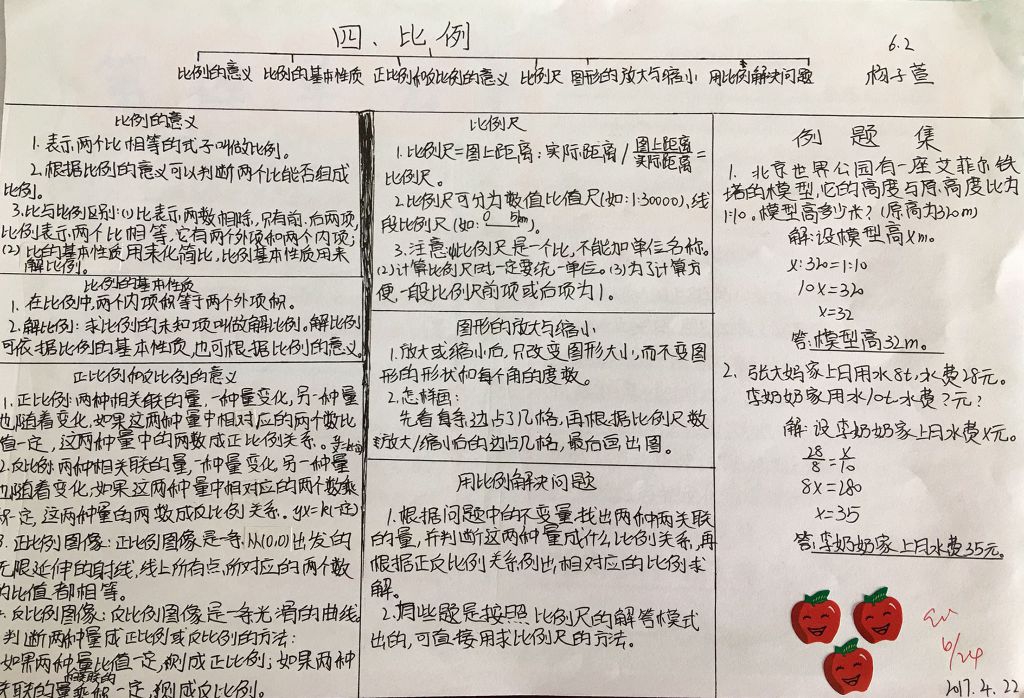 四、比例
6.2
杨子萱
比例的意义 比例的基本性质 正比例和反比例的意义 比例尺 图形的放大与缩小 用比例解决问题
比例的意义
1. 表示两个比相等的式子叫做比例。
2. 根据比例的意义可以判断两个比能否组成
比例。
3. 比与比例区别:(1)比表示两数相除,只有前、后两项,
比例表示两个比相等,它有两个外项和两个内项;
(2)比的基本性质用来化简比,比例基本性质用来
解比例。
比例的基本性质
1. 在比例中,两个内项积等于两个外项积。
2. 解比例:求比例的未知项叫做解比例。解比例
可依据比例的基本性质,也可根据比例的意义。
正比例和反比例的意义
1. 正比例:两种相关联的量,一种量变化,另一种量
也随着变化,如果这两种量中相对应的两个数比
值一定,这两种量中的两数成正比例关系。
2. 反比例:两种相关联的量,一种量变化,另一种量
也随着变化,如果这两种量中相对应的两个数乘
积一定,这两种量的两数成反比例关系。yx=k(一定)
3. 正比例图像:正比例图像是一条从(0,0)出发的
无限延伸的射线,线上所有点,所对应的两个数
的比值都相等。
4. 反比例图像:反比例图像是一条光滑的曲线
判断两种量成正比例或反比例的方法:
如果两种量比值一定,则成正比例;如果两种
相关联的
关联的量乘积一定,则成反比例。
比例尺
1. 比例尺=图上距离:实际距离/图上距离/实际距离=
比例尺。
2. 比例尺可分为数值比值尺(如:1:30000),线
段比例尺(如:0 5km)。
3. 注意:(1)比例尺是一个比,不能加单位名称。
(2)计算比例尺时一定要统一单位。(3)为了计算方
便,一般比例尺前项或后项为1。
图形的放大与缩小
1. 放大或缩小后,只改变图形大小,而不变图
形的形状和每个角的度数。
2. 怎样画:
先看每条边占了几格,再根据比例尺数
放大/缩小后的边占几格,最后画出图。
用比例解决问题
1. 根据问题中的不变量,找出两种两关联
的量,并判断这两种量成什么比例关系,再
根据正反比例关系例出,相对应的比例求
解。
2. 有些题是按照比例尺的解答模式
出的,可直接用求比例尺的方法。
例题集
1. 北京世界公园有一座艾菲尔铁
塔的模型,它的高度与原高度比为
1:10。模型高多少米?(原高为320m)
解:设模型高xm。
x:320=1:10
10x=320
x=32
答:模型高32m。
2. 张大妈家上月用水8t,水费28元。
李奶奶家用水10t,水费?元?
解:设李奶奶家上月水费x元。
28/8=x/10
8x=280
x=35
答:李奶奶家上月水费35元。
6/24
2017.4.22